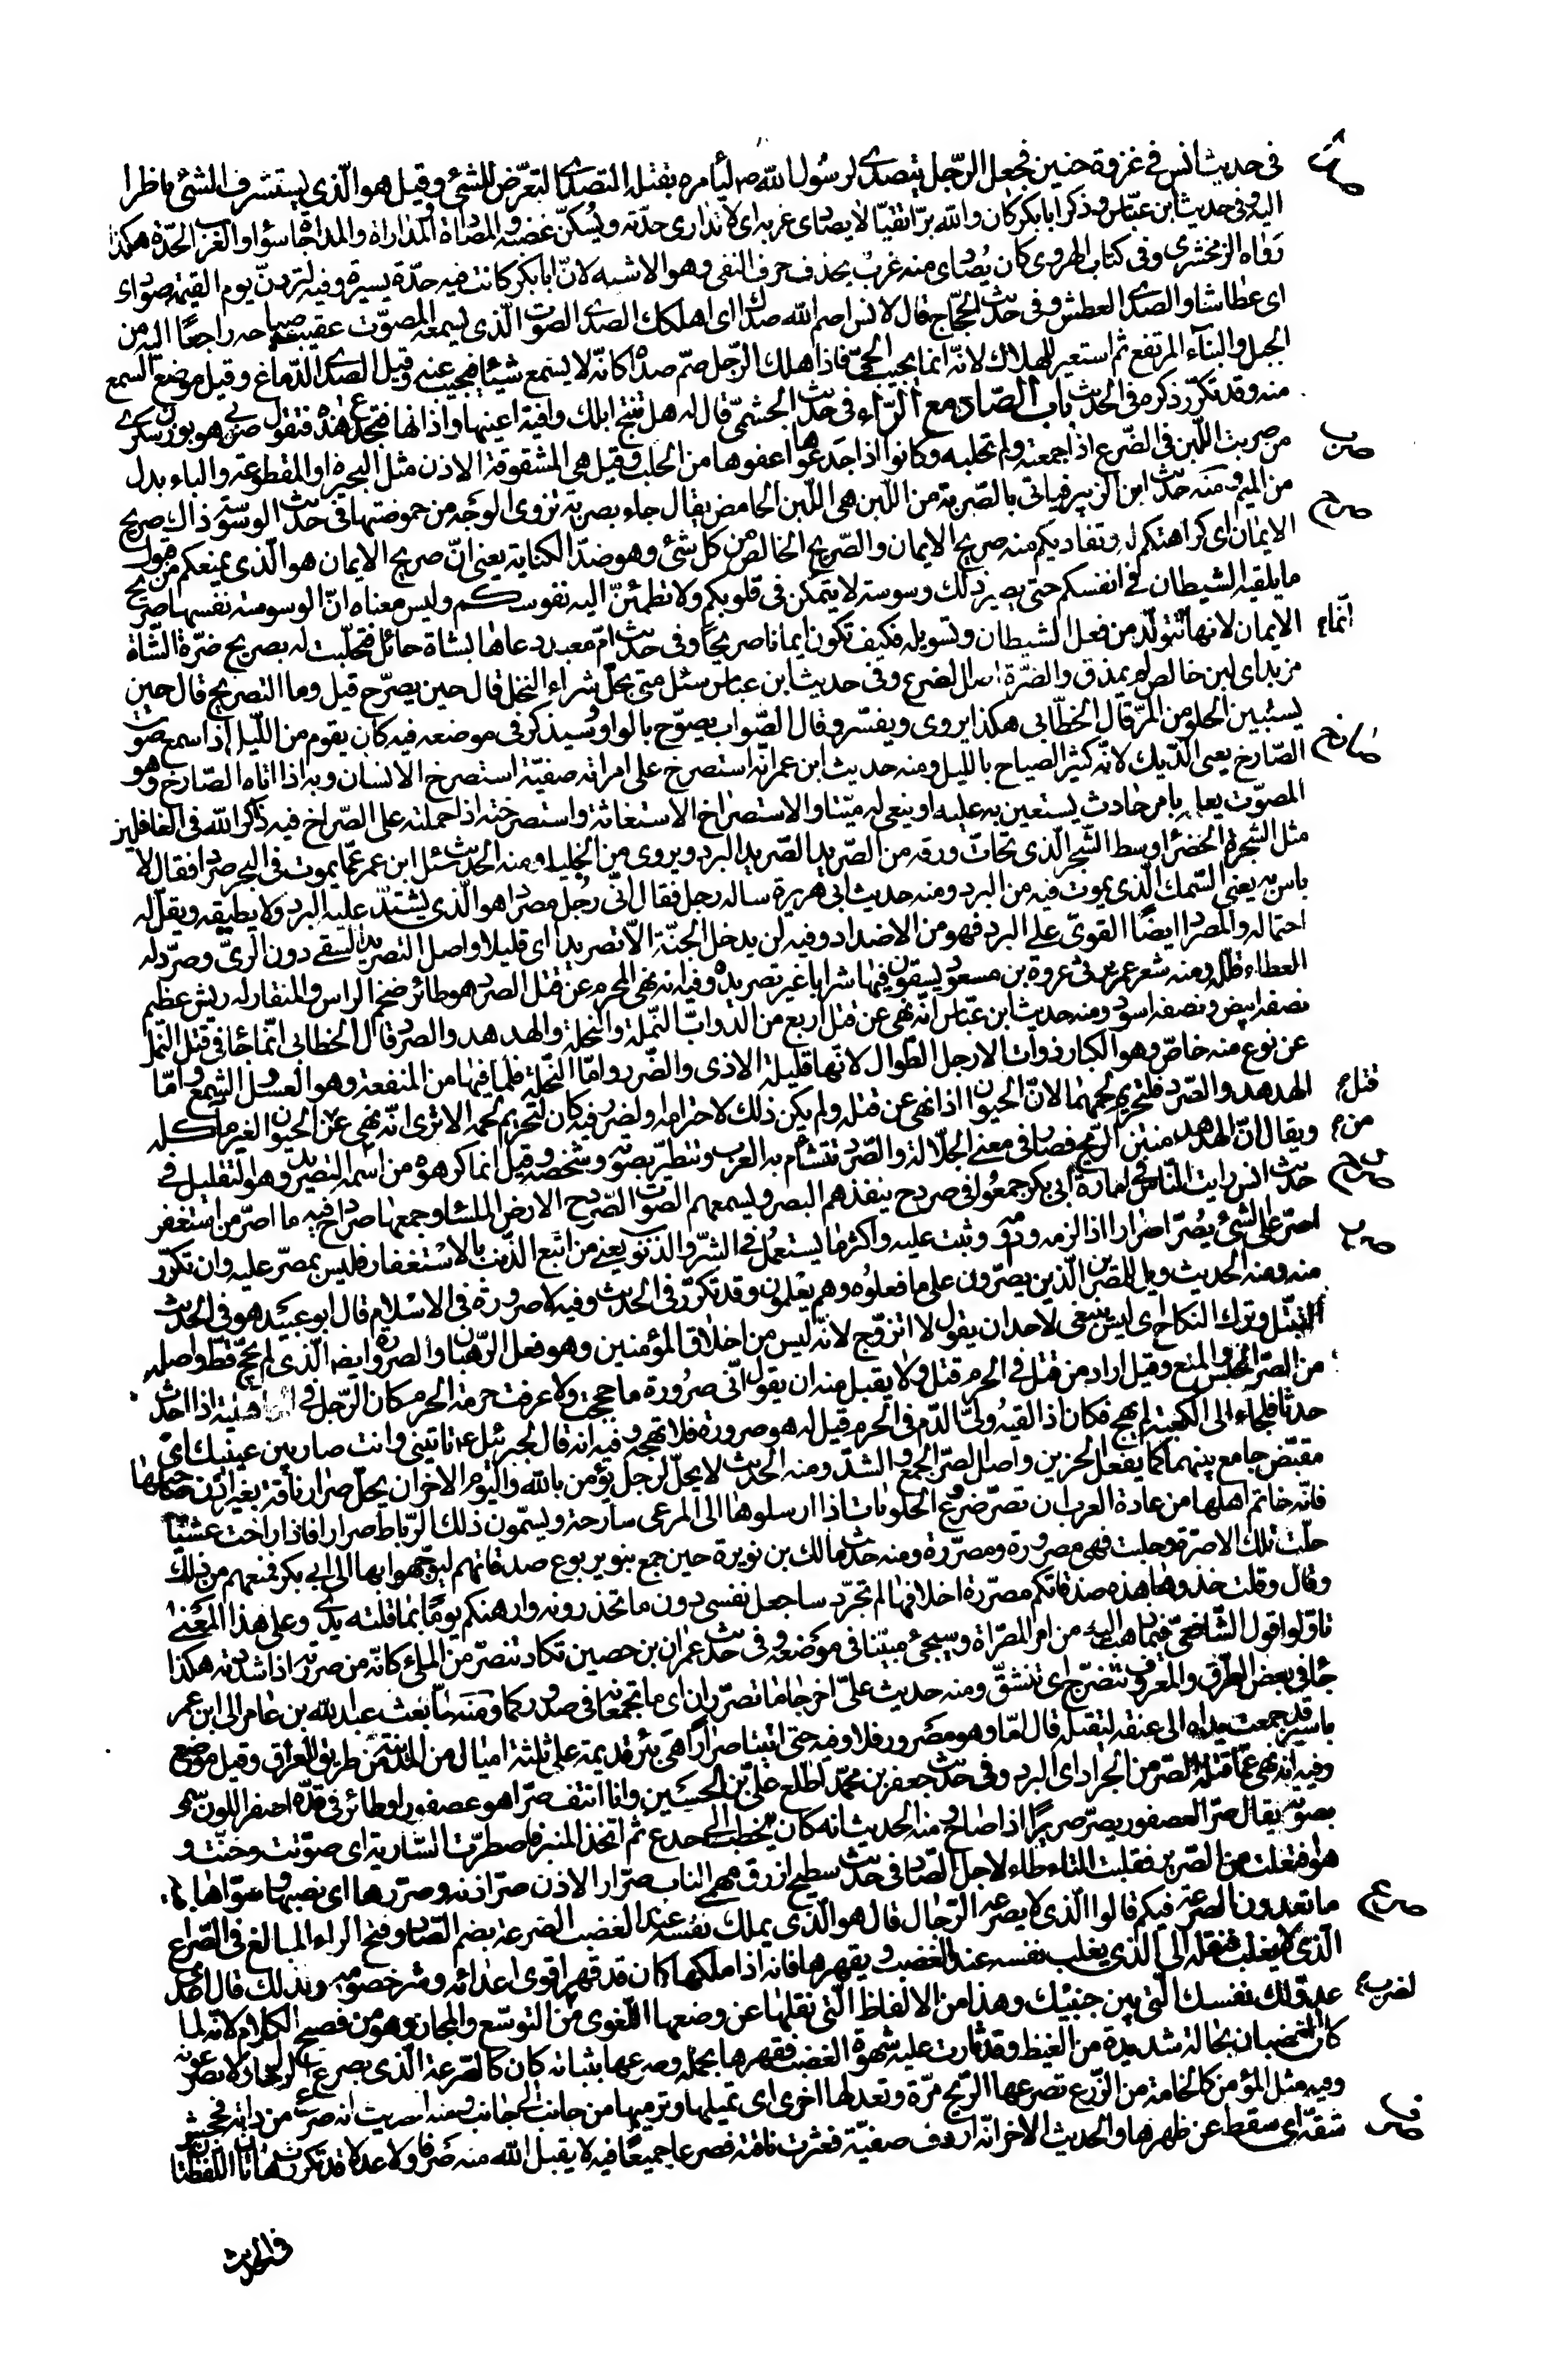 في حديث انس في غزوة حنين فجعل الرّجل يتصدّى لرسول الله صلم ليأمره بقتله التصدّى التعرّض للشئ وقيل هو الّذي يستشرف الشئ ناظرا
اليه وفي حديث ابن عبّاس وذكر ابا بكر كان والله برّا تقيّا لا يصادى غربه اى لا تدارى حدّته ويُسكّن غضبه والمصاداة والمداراة والمداجاة سواء والغرب الحدّة هكذا
رواه الزمخشري وفي كتاب الهروى كان يُصادى منه غربٌ بحذف حرف النفى وهو الاشبه لانّ ابا بكر كانت فيه حدّة يسيرة وفيه لتردنّ يوم القيمة صوادى
اى عطاشا والصدى العطش وفي حديث الحجّاج قال لانس اصم الله صداك اى اهلكك الصدى الصوت الّذي يسمعه المصوّت عقيب صياحه راجعًا اليه من
الجبل والبناء المرتفع ثم استعير للهلاك لانّه انما يجيب الحىّ فاذا هلك الرّجل صمّ صداه كانّه لا يسمع شيئا فيجيب عنه وقيل الصدى الدّماغ وقيل موضع السمع
منه وقد تكرّر ذكره في الحديث باب الصّاد مع الرّاء في حديث الجشمىّ قال له هل تنتج ابلك وافية اعينها واذانها فتجدع هذه فتقول صربى هو بوزن سكرى
صرب من صربت اللّبن في الضّرع اذا جمعته ولم تحلبه وكانوا اذا جدعوها اعفوها من الحلب وقيل هى المشقوقة الاذن مثل البحيرة او المقطوعة والباء بدل
من الميم ومنه حديث ابن الزبير فياتى بالصّربة من اللّبن هى اللّبن الحامض يقال جاء بصربة تزوى الوجه من حموضتها في حديث الوسوسة ذاك صريح
صرح الايمان اى كراهتكم له وتفاديكم منه صريح الايمان والصّريح الخالص من كل شئ وهو ضدّ الكناية يعنى انّ صريح الايمان هو الّذي يمنعكم من قبول
ما يلقيه الشيطان في انفسكم حتى يصير ذلك وسوسة لا يتمكّن في قلوبكم ولا تطمئنّ اليه نفوسكم وليس معناه انّ الوسوسة نفسها صريح
الايمان لانها انّما تتولّد من فعل الشيطان وتسويله فكيف تكون ايمانا صريحًا وفي حديث امّ معبد دعاها بشاة حائل فتحلّبت له بصريح ضرّة الشّاة
مزبد اى لبن خالص لم يمذق والضرّة اصل الضرع وفي حديث ابن عباس سئل متى يحلّ شراء النخل قال حين يصرّح قيل وما التصريح قال حين
يستبين الحلو من المرّ قال الخطّابى هكذا يروى ويفسّر وقال الصّواب يصوّح بالواو وسيذكر في موضعه فيه كان يقوم من اللّيل اذا سمع صوت
صرخ الصّارخ يعنى الدّيك لانّه كثير الصياح بالليل ومنه حديث ابن عمر انّه استصرخ على امراته صفيّة استصرخ الانسان وبه اذا اتاه الصّارخ وهو
المصوّت يعلمه بامر حادث يستعين به عليه او ينعى له ميّتا والاستصراخ الاستغاثة واستصرخته اذا حملته على الصّراخ فيه ذاكر الله في الغافلين
مثل الشجرة الخضراء وسط الشّجر الّذي تحاتّ ورقه من الصّريد الصّريد البرد ويروى من الجليد ومنه الحديث سئل ابن عمر عمّا يموت في البحر صردا فقال لا
باس به يعنى السّمك الّذي يموت فيه من البرد ومنه حديث ابى هريرة ساله رجل فقال انّى رجُل مصراد هو الّذي يشتدّ عليه البرد ولا يطيقه ويقلّ له
احتماله والمصراد ايضًا القوىّ على البرد فهو من الاضداد وفيه لن يدخل الجنّة الاّ تصريدا اى قليلا واصل التصريد السّقى دون الرىّ وصرّد له
العطاء قلّله ومنه شعر عمر يرثى عروة بن مسعود يسقون فيها شرابا غير تصريد وفيه انه نهى المحرم عن قتل الصرد هو طائر ضخم الراس والمنقار له ريش عظيم
نصفه ابيض ونصفه اسود ومنه حديث ابن عبّاس انّه نهى عن قتل اربع من الدّوابّ النّملة والنّحلة والهدهد والصرد قال الخطّابى انّما جاء في قتل النّمل
عن نوع منه خاصّ وهو الكبار ذوات الارجل الطّوال لانّها قليلة الاذى والضّرر وامّا النّحلة فلما فيها من المنفعة وهو العسل والشمع وامّا
الهدهد والصّرد فلتحريم لحمهما لانّ الحيوان اذا نهى عن قتله ولم يكن ذلك لاحترامه او لضرر فيه كان لتحريم لحمه الا ترى انّه نهى عن قتل الحيوان لغير ماكله
ويقال انّ الهدهد منتن الرّيح فصار في معنى الجلاّلة والصّرد تتشأم به العرب وتتطيّر بصوته وشخصه وقيل انما كرهوه من اسمه من التصريد وهو التقليل في
صردح حديث انس رايت النّاس في امارة ابى بكر جمعوا في صردح ينفذهم البصر ويسمعهم الصوت الصّردح الارض الملساء وجمعها صرادح فيه ما اصرّ من استغفر
صرر اصرّ على الشئ يُصرّ اصرارا اذا لزمه وداومه وثبت عليه واكثر ما يستعمل في الشرّ والذنوب يعنى من اتبع الذّنب بالاستغفار فليس بمصرّ عليه وان تكرّر
منه ومنه الحديث ويل للمصرّين الّذين يصرّون على ما فعلوه وهم يعلمون وقد تكرّر في الحديث وفيه لا صرورة في الاسلام قال ابو عبيد هو في الحديث
التبتّل وترك النكاح اى ليس ينبغى لاحد ان يقول لا اتزوّج لانّه ليس من اخلاق المؤمنين وهو فعل الرّهبان والصرورة ايضا الّذي لم يحجّ قطّ واصله
من الصّرّ الحبس والمنع وقيل اراد من قتل في الحرم قتل ولا يقبل منه ان يقول انّى صرورة ما حججت ولا عرفت حرمة الحرم كان الرّجل في الجاهليّة اذا احدث
حدثا فلجاء الى الكعبة لم يهج فكان اذا لقيه ولىّ الدّم في الحرم قيل له هو صرورة فلا تهجه وفيه انه قال لجبرئيل ع تاتينى وانت صارّ بين عينيك اى
مقبّض جامع بينهما كما يفعل الحزين واصل الصّرّ الجمع والشدّ ومنه الحديث لا يحلّ لرجل يؤمن بالله واليوم الاخر ان يحلّ صرار ناقة بغير اذن صاحبها
فانّه خاتم اهلها من عادة العرب ان تصرّ ضروع الحلوبات اذا ارسلوها الى المرعى سارحة ويسمّون ذلك الرّباط صرارا فاذا راحت عشيّا
حلّت تلك الاصرّة وحلبت فهى مصرورة ومصرّرة ومنه حديث مالك بن نويرة حين جمع بنو يربوع صدقاتهم ليوجّهوا بها الى ابى بكر فمنعهم من ذلك
وقال وقلت خذوها هذه صدقاتكم مصرّرة اخلافها لم تجرّد ساجعل نفسى دون ما تحذرونه وارهنكم يومًا بما قلته يدى وعلى هذا المعنى
تاوّلوا قول الشّافعىّ فيما ذهب اليه من امر المصرّاة وسيجئ مبيّنا في موضعه وفي حديث عمران بن حصين تكاد تنصرّ من الملئ كانّه من صررته اذا شددته هكذا
جاء في بعض الطّرق والمعروف تنضرج اى تنشقّ ومنه حديث علىّ اخرجا ما تصرّران اى ما تجمعانه في صدوركما ومنه لمّا بعث عبد الله بن عامر الى ابن عمر
باسير قد جمعت يداه الى عنقه ليقتله قال امّا وهو مصرور فلا وفيه حتى اتينا صرارًا هى بئر قديمة على ثلثة اميال من المدينة من طريق العراق وقيل موضع
وفيه انه نهى عمّا قتله الصّرّ من الجراد اى البرد وفي حديث جعفر بن محمّد اطّلع علىّ بن الحسين وانا انتف صرّا هو عصفور او طائر في قدّه اصفر اللون سمى
بصوته يقال صرّ العصفور يصرّ صريرًا اذا صاح ومنه الحديث انه كان يخطب الى جذع ثم اتخذ المنبر فاصطرّت السّارية اى صوّتت وحنّت و
هو افتعلت من الصّرير فقلبت التاء طاء لاجل الصّاد في حديث سطيح ازرق مهمى النّاب صرّار الاذن صرّ اذنه وصرّرها اى نصبها وسوّاها
صرع ما تعدون الصرعة فيكم قالوا الّذي لا يصرعه الرّجال قال هو الّذي يملك نفسه عند الغضب الصّرعة بضم الصّاد وفتح الراء المبالغ في الصّراع
الّذي لا يغلب فنقله الى الّذي يغلب نفسه عند الغضب ويقهرها فانه اذا ملكها كان قد قهر اقوى اعدائه وشرّ خصومه ولذلك قال اعدى
عدوّ لك نفسك الّتى بين جنبيك وهذا من الالفاظ الّتى نقلها عن وضعها اللّغوى من التوسّع والمجاز وهو من فصيح الكلام لانّه لما
كان الغضبان بحالة شديدة من الغيظ وقد ثارت عليه شهوة الغضب فقهرها بحلمه وصرعها بثباته كان كالصّرعة الّذي يصرع الرجال ولا يصرعونه
وفيه مثل المؤمن كالخامة من الزّرع تصرعها الرّيح مرّة وتعدلها اخرى اى تميلها وترميها من جانب الى جانب ومنه الحديث انه صرع من دابة فجحش
صرف شقّه اى سقط عن ظهرها والحديث الاخر انّه اردف صفيّة فعثرت ناقته فصرعا جميعًا فيه لا يقبل الله منه صرفا ولا عدلا قد تكرّرت هاتان اللفظتان
في الحديث